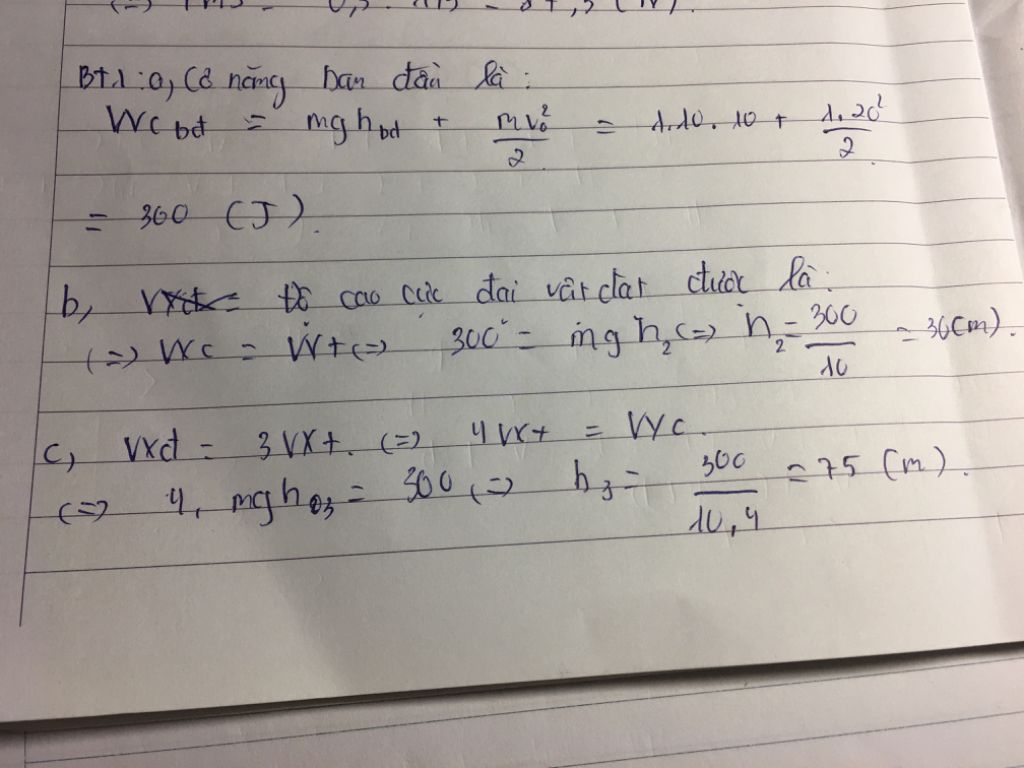 Bt1: a, Cơ năng ban đầu là:
Wc bđ = mgh bđ + mv₀²/2 = 1.10.10 + 1.20²/2
= 300 (J).
b, Độ cao cực đại vật đạt được là:
(=) Wc = Wt (=) 300 = mgh₂ (=) h₂ = 300/10 = 30(m).
c, Wđ = 3Wt. (=) 4Wt = Wc.
(=) 4. mgh₃ = 300 (=) h₃ = 300/10.4 = 75 (m).